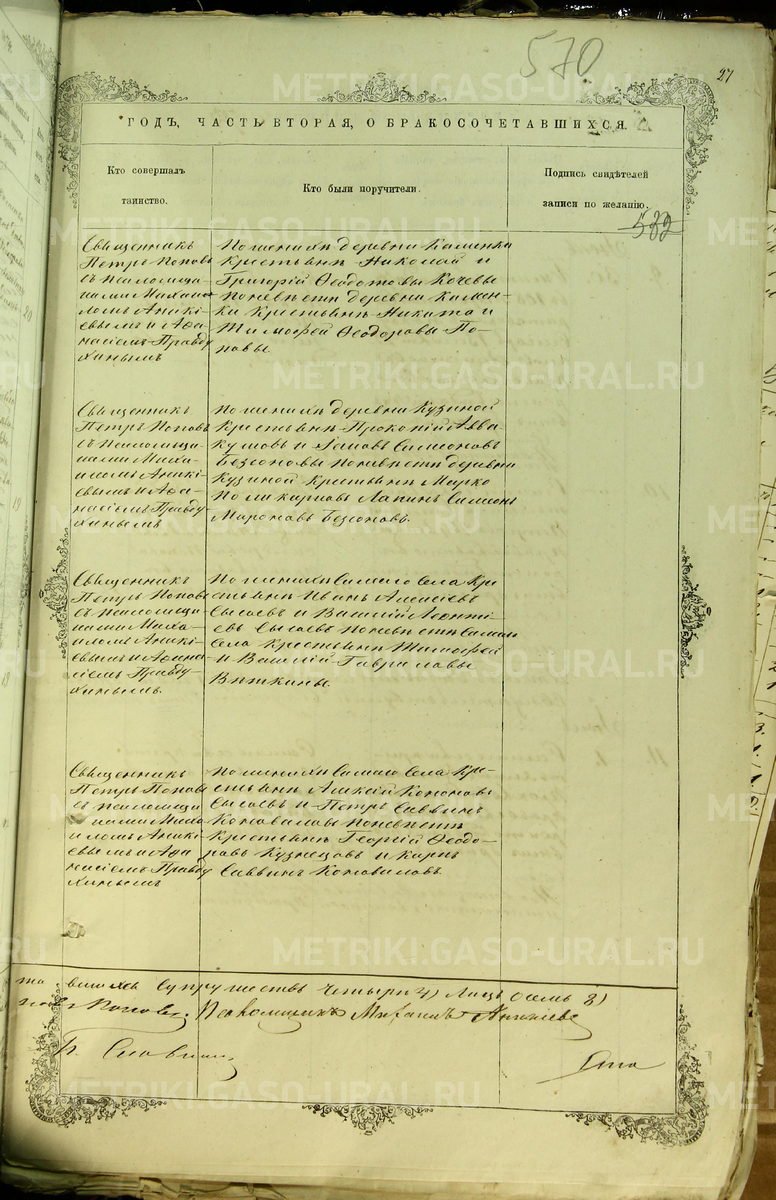 570
27
ГОДЪ, ЧАСТЬ ВТОРАЯ, О БРАКОСОЧЕТАВШИХСЯ.
Кто совершалъ
таинство.
Кто были поручители.
Подпись свидѣтелей
записи по желанію.
532
Священникъ
Петръ Поповъ
съ псаломщи-
ками Миха
ломъ Аники-
евымъ и Афа-
насіемъ Правду
хинымъ
По женихѣ деревни Каменки
крестьяне Николай и
Григорій Ѳеодотовы Кочевы
по невѣстѣ деревни Камен-
ки крестьяне Никита и
Тимофей Ѳеодоровы По-
повы.
Священникъ
Петръ Поповъ
съ псаломщи
ками Миха-
иломъ Аникі-
евымъ и Афа-
насіемъ Правду
хинымъ
По женихѣ деревни Кузиной
крестьяне Прокопій Авва
кумовъ и Семеоновъ
Безсоновы по невѣстѣ деревни
Кузиной крестьяне Марко
Поликарповъ Лапинъ Симеонъ
Мироновъ Безсоновъ.
Священникъ
Петръ Поповъ
съ псаломщи
ками Миха-
иломъ Аникі-
евымъ и Афана-
сіемъ Правду-
хинымъ.
По женихѣ самаго села кре
стьяне Иванъ Алексіевъ
Сысоевъ и Василій Леонті-
евъ Сысоевъ по невѣстѣ самаго
села крестьяне Тимофей
и Василій Гавриловы
Вяткины.
Священникъ
Петръ Поповъ
съ псаломщи
ками Миха
иломъ Аникі-
евымъ и Афа
насіемъ Правду
хинымъ
По женихѣ самаго села кре-
стьяне Алексій Кононовъ
Сысоевъ и Петръ Саввинъ
Коноваловы по невѣстѣ
крестьяне Георгій Ѳеодо-
ровъ Кузнецовъ и Карпъ
Саввинъ Коноваловъ.
вшихся супружествъ четыре 4) лицъ осемь 8)
Поповъ. Псаломщикъ Михаилъ Аникіевъ
METRIKI.GASO-URAL.RU